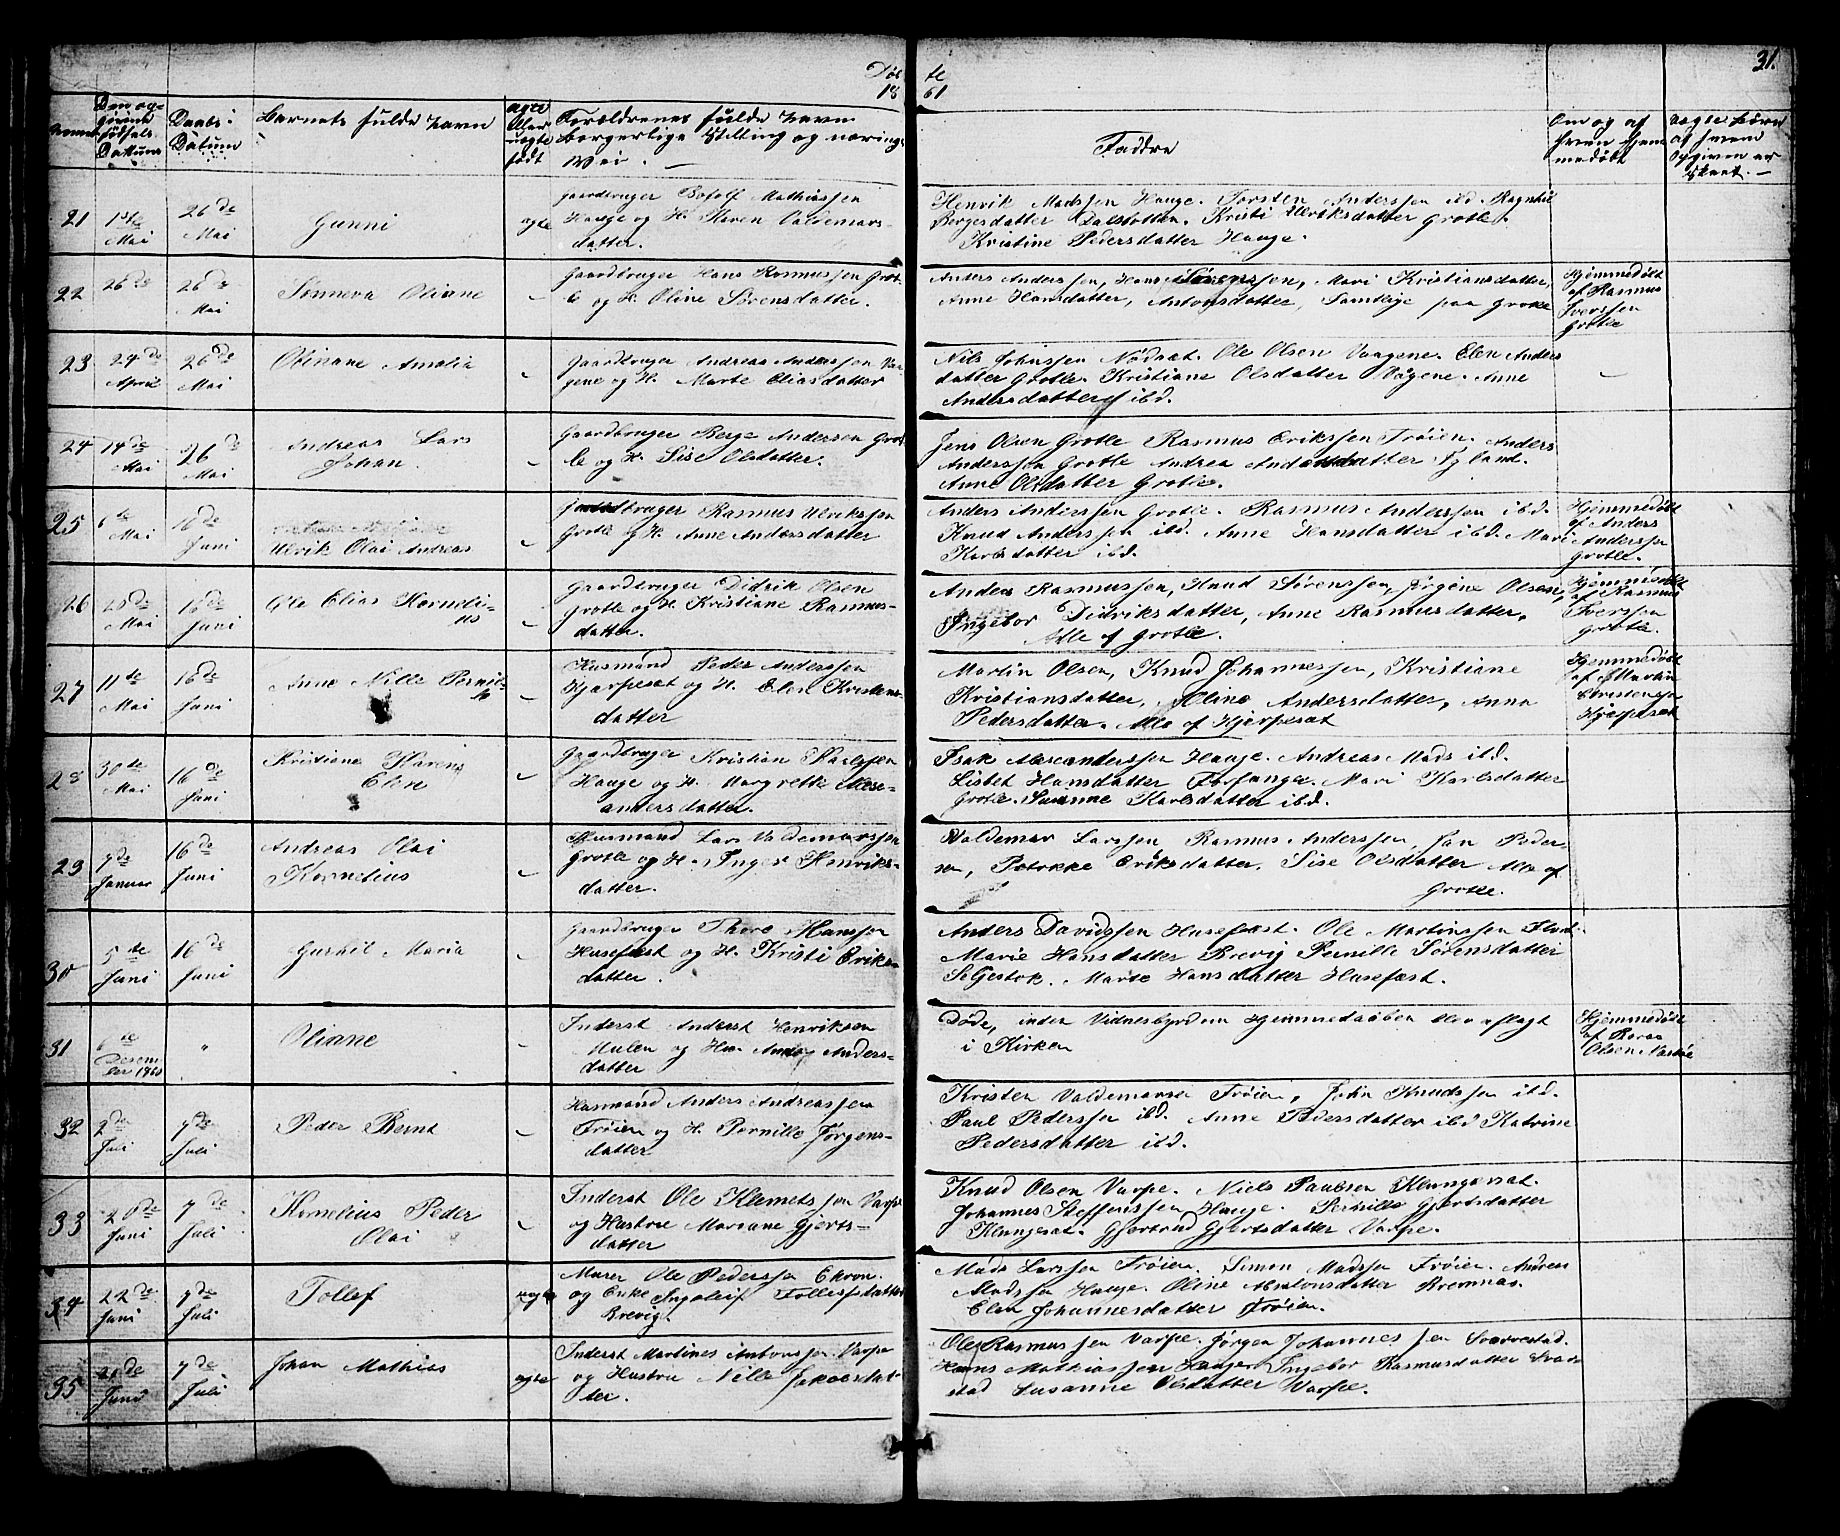 Døb te 31.
18 61
Den opgivne Fødsels Dattum
Daabs Datum
Barnets fulde Navn
ægte eller uægte født
Forældrenes fulde Navn
borgerlige Stilling og nærings
Vei. —
Faddre
Om og af
hvem hjem
medøbt
uægte børn
af hvem
Opgiven er
Skeet. —
21 1ste Mai 26de Mai Gunni ægte
gaardbruger Mathiassen
Hauge og H. Maren Valdemars-
datter.
Henrik Madssen Hauge. Torsten Anderssen ibd.
Børgesdatter Kristi Ulriksdatter Grotle.
Kristine Pedersdatter Hauge.
22 26de 26de Mai Sønneva Oliane –
Gaardbruger Hans Rasmussen Grot-
le og H. Oline Sørensdatter.
Anders Anderssen, Hans Sørenssen, Mari Kristiansdatter,
Anne Hansdatter, Antonsdatter, Samtlige paa Grotle
Hjemmedøbt
af Rasmus
Iverssen
Grotle
23 24de April 26de Mai Olinane Amalia –
Gaardbruger Andreas Anderssen Vaa-
gene og H. Marte Eliasdatter
Nils Johnssen Ole Olsen Vaagene. Elen Anders
datter Grotle. Kristiane Olsdatter Vågene. Anne
Andersdatter ibd.
24 14de Mai 26de Mai Andreas Lars
Johan. –
Gaardbruger Berge Andersen Grot-
le og H. Sise Olsdatter.
Jens Olsen Grotle Rasmus Erikssen Frøien. Anders
Anderssen Grotle Andrea Andersdatter Nyland.
Anne Olsdatter Grotle.
25 6te Mai 16de Juni
Ulrik Olai Andreas –
Gaardbruger Rasmus Ulrikssen
Grotle og H. Anne Andersdatter
Anders Anderssen Grotle. Rasmus Anderssen ibd.
Knud Anderssen ibd. Anne Hansdatter ibd. Mari
Karlsdatter ibd.
Hjemmedøbt
af Anders
Anderssen
Grotle.
26 20de Mai 16de Juni Ole Elias Korneli-
us –
Gaardbruger Didrik Olsen
Grotle og H. Kristiane Rasmus-
datter.
Anders Rasmussen, Knud Sørenssen, Jørgine Olsen,
Ingebor Didriksdatter, Anne Rasmusdatter,
Alle af Grotle.
Hjemmedøbt
af Rasmus
Iverssen
Grotle.
27 11de Mai 16de Juni Anne Nille Pernil-
le –
Husmand Peder Anderssen
Hjarpesæt og H. Elen Kristens-
datter
Martin Olsen, Knud Johannessen, Kristiane
Kristiansdatter, Oline Andersdatter, Anna
Pedersdatter. Alle af Hjerpesæt
Hjemmedøbt
af Martin
Christenssen
Hjerpesæt
28 30te Mai 16de Juni Kristiane Karens
Elen –
Gaardbruger Kristian Karlssen
Hauge og H. Margrette Alex-
andersdatter.
Isak Alexanderssen Hauge. Andreas Mads ibd.
Lisbet Hansdatter Mari Karlsdatter
Grotle. Susanne Karlsdatter ibd.
29 7de Januar 16de Juni Andreas Olai
Kornelius –
Husmand Lars Valdemarssen
Grotle og H. Inger Henriks-
datter.
Valdemar Larssen Rasmus Anderssen Jan Peder-
sen, Petrikke Eriksdatter. Sise Olsdatter Alle af
Grotle.
30 5te Juni 16de Juni Gurhil Maria
Gaardbruger Thore Hanssen
Husefæst og H. Kristi Eriks-
datter.
Anders Davidssen Husefæst. Ole Martinssen
Marie Hansdatter Brevig Pernille Sørensdatter
Marte Hansdatter Husefæst.
31 6te Desem-
ber 1860 " Oliane –
Inderst Anderst Henriksen
Hulen og Hu. Anders-
datter
Døde, inden Vidnesbyrd om Hjemmedaaben blev aflagt
i Kirken
Hjemmedøbt
af
Olsen
32 2den Juli 7de Juli Peder Bernt –
Husmand Anders Andreassen
Frøien og H. Pernille Jørgens-
datter
Kristen Valdemarsen Frøien, John Knudssen ibd.
Paul Pederssen ibd. Anne Pedersdatter ibd Katrine
Pedersdatter ibd.
33 20de Juni 7de Juli Kornelius Peder
Olai –
Inderst Ole Klemetssen Varpe
og Hustroe Mariane Gjerts-
datter
Knud Olsen Varpe. Niels Paulsen Klungersæt.
Johannes Steffenssen Hauge. Pernille Gjertsdatter
Klungersæt. Gjertrud Gjertsdatter Varpe.
34 22de Juni 7de Juli Tollef uægte
Murer Ole Pederssen
og Enke Ingeleif Tollefsdatter
Brevig.
Mads Larssen Frøien. Simon Madssen Frøien. Andreas
Madssen Hauge. Oline Absalonsdatter Bremnæs.
Elen Johannesdatter Frøien.
35 21de Juni 7de Juli Johan Mathias ægte
Inderst Martines Antonssen Varpe
og Hustru Nille Jakobsdat-
ter.
Ole Rasmussen Varpe. Jørgen Johannessen Svarvestad.
Hans Mathiassen Hauge. Ingebor Rasmusdatter Svarve
stad Susanne Olsdatter Varpe.